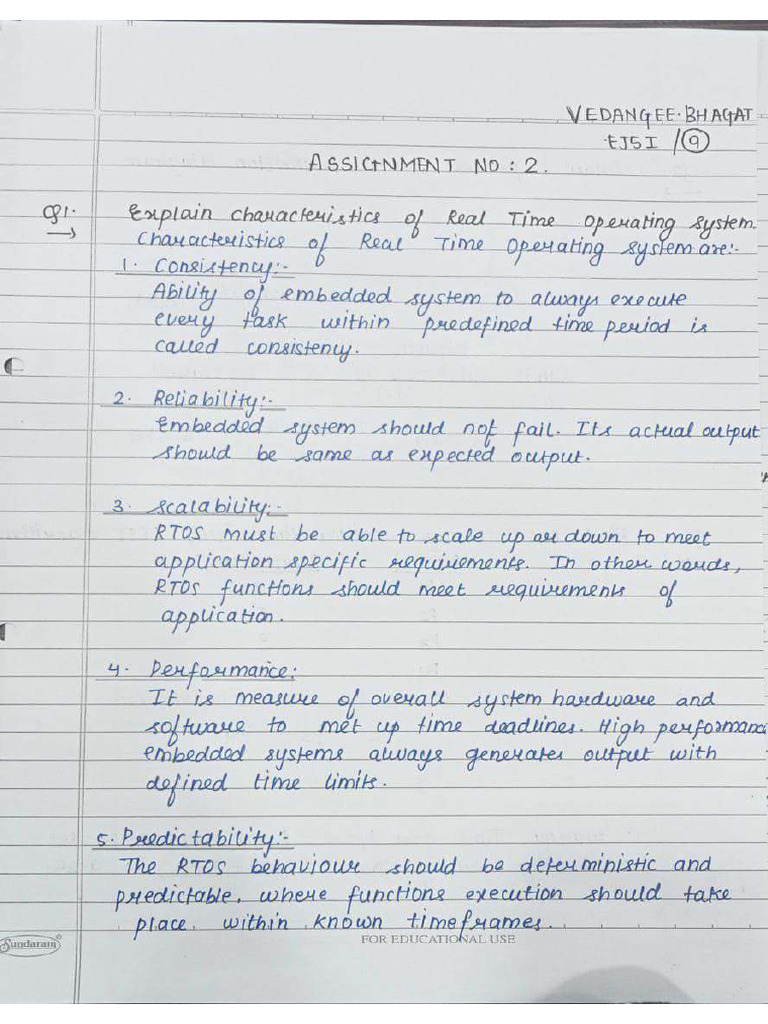 VEDANGEE. BHAGAT
EJ5I / 9
ASSIGNMENT NO : 2.
Q1. Explain characteristics of Real Time Operating system.
→ Characteristics of Real Time Operating system are:-
1. Consistency:-
Ability of embedded system to always execute
every task within predefined time period is
called consistency.
2. Reliability:-
Embedded system should not fail. Its actual output
should be same as expected output.
3. Scalability:-
RTOS must be able to scale up or down to meet
application specific requirements. In other words,
RTOS functions should meet requirements of
application.
4. Performance:
It is measure of overall system hardware and
software to met up time deadlines. High performance
embedded systems always generates output with
defined time limits.
5. Predictability:-
The RTOS behaviour should be deterministic and
predictable, where functions execution should take
place within known timeframes.
Sundaram®
FOR EDUCATIONAL USE